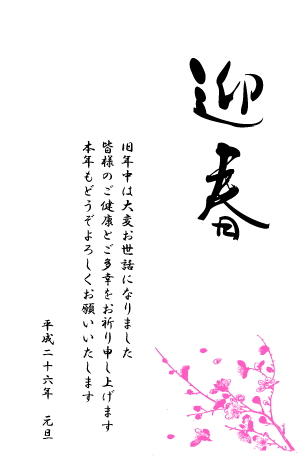 迎春
旧年中は大変お世話になりました
皆様のご健康とご多幸をお祈り申し上げます
本年もどうぞよろしくお願いいたします
平成二十六年 元旦